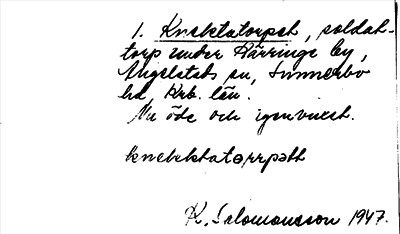 1. Knektatorpet, soldat-
torp under Härringe by,
Angelstads sn, Sunnerbo
hd, Krb. län.
Nu öde och igenvuxet.
knektatorpatt
K. Salomonsson 1947.